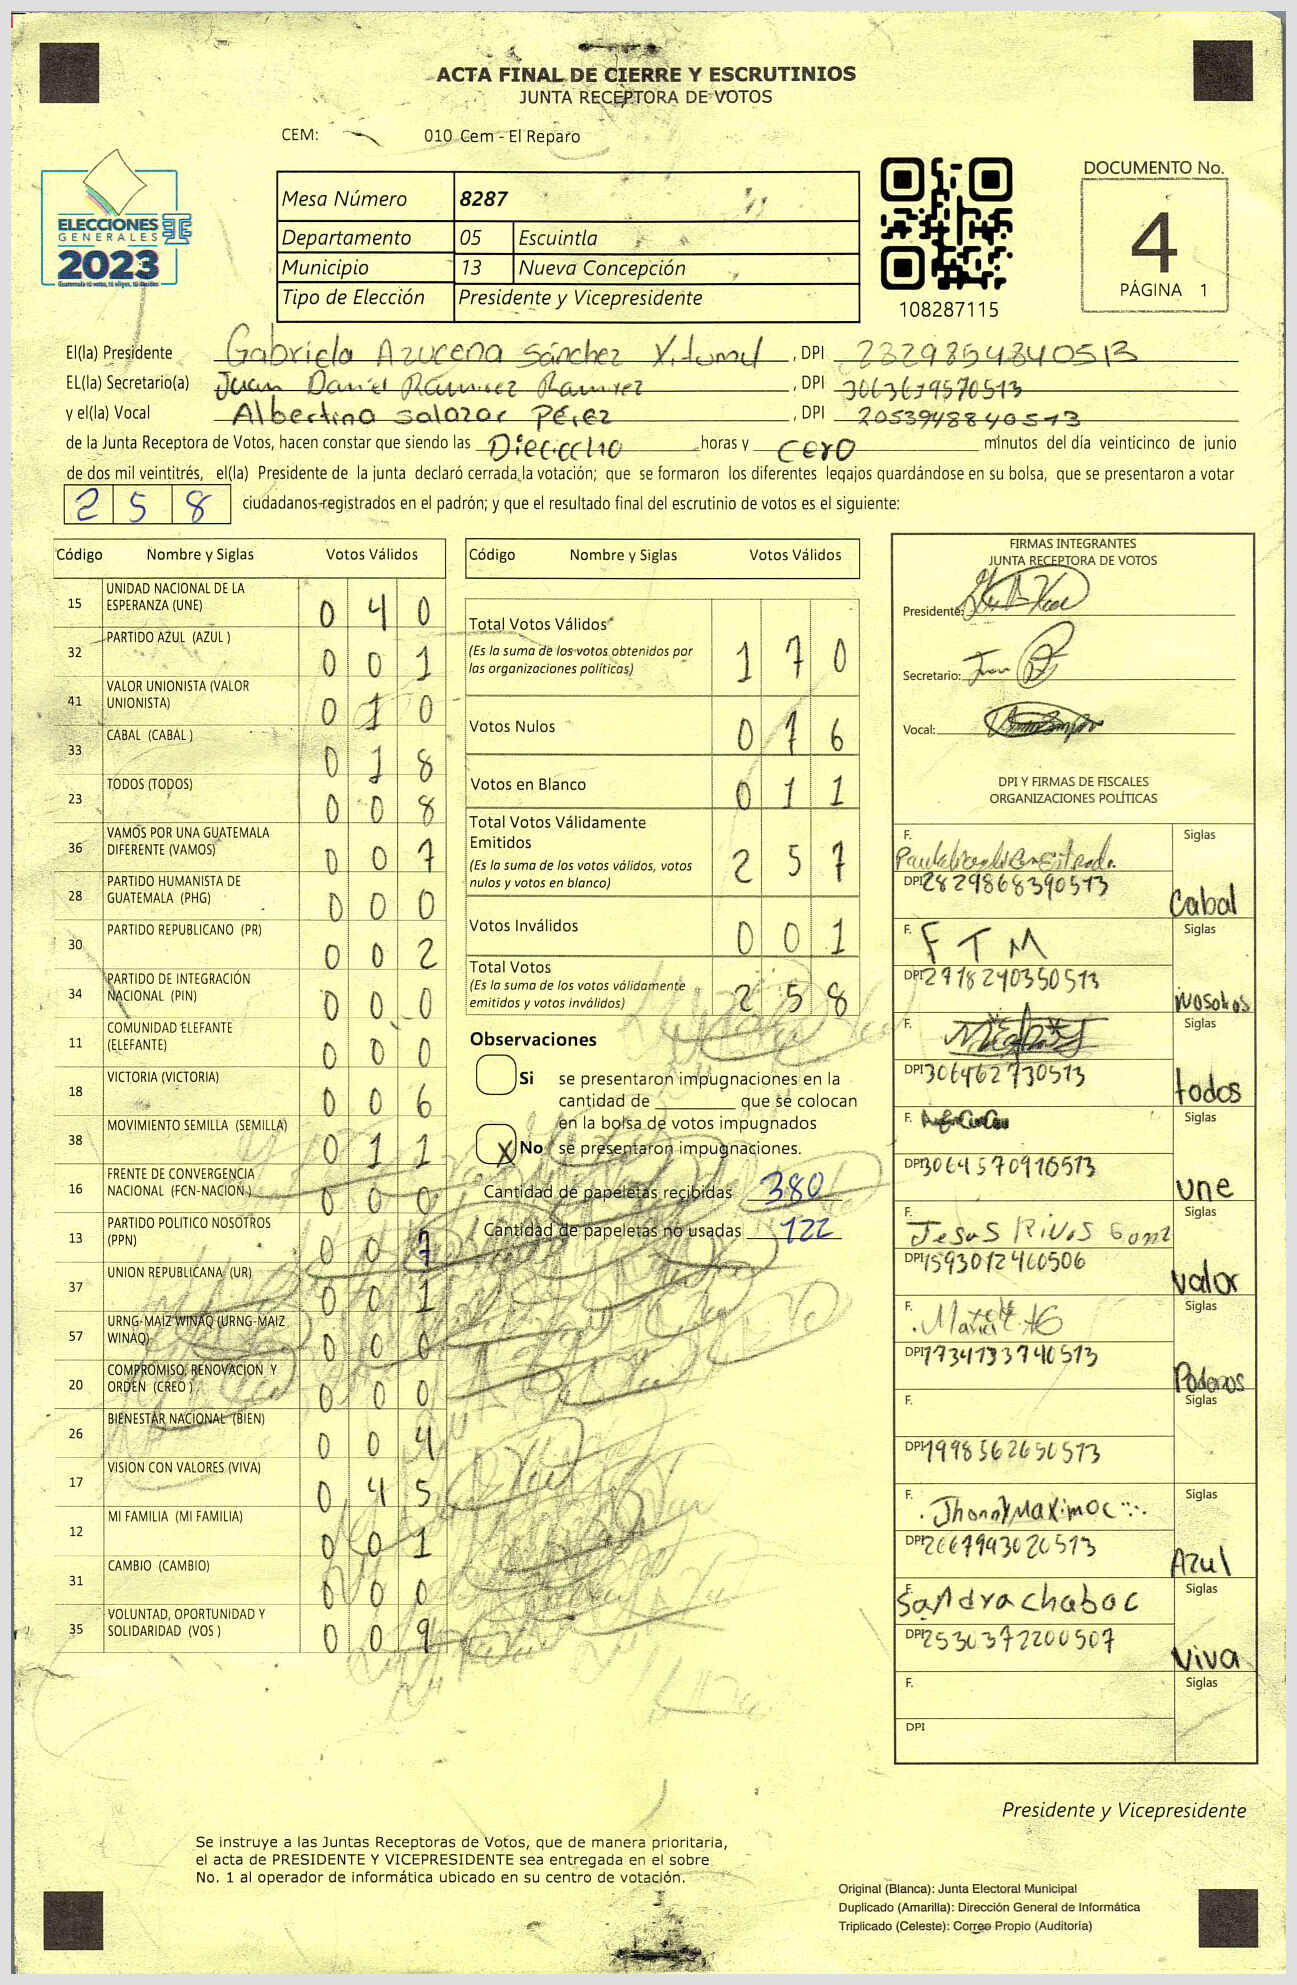 ACTA FINAL DE CIERRE Y ESCRUTINIOS
JUNTA RECEPTORA DE VOTOS
CEM: 010 Cem - El Reparo
ELECCIONES
GENERALES
2023
Guatemala tú votas, tú eliges, tú decides
Mesa Número 8287
Departamento 05 Escuintla
Municipio 13 Nueva Concepción
Tipo de Elección Presidente y Vicepresidente
108287115
DOCUMENTO No.
4
PÁGINA 1
El(la) Presidente Gabriela Azucena Sánchez , DPI 2829854840513
EL(la) Secretario(a) Juan Daniel Ramirez Ramirez , DPI 3063619570513
y el(la) Vocal Albertina Salazar Pérez , DPI 2053948840513
de la Junta Receptora de Votos, hacen constar que siendo las Dieciocho horas y cero minutos del día veinticinco de junio
de dos mil veintitrés, el(la) Presidente de la junta declaró cerrada la votación; que se formaron los diferentes legajos guardándose en su bolsa, que se presentaron a votar
258 ciudadanos registrados en el padrón; y que el resultado final del escrutinio de votos es el siguiente:
Código Nombre y Siglas Votos Válidos
15 UNIDAD NACIONAL DE LA ESPERANZA (UNE) 040
32 PARTIDO AZUL (AZUL ) 001
41 VALOR UNIONISTA (VALOR UNIONISTA) 010
33 CABAL (CABAL ) 018
23 TODOS (TODOS) 008
36 VAMOS POR UNA GUATEMALA DIFERENTE (VAMOS) 007
28 PARTIDO HUMANISTA DE GUATEMALA (PHG) 000
30 PARTIDO REPUBLICANO (PR) 002
34 PARTIDO DE INTEGRACIÓN NACIONAL (PIN) 000
11 COMUNIDAD ELEFANTE (ELEFANTE) 000
18 VICTORIA (VICTORIA) 006
38 MOVIMIENTO SEMILLA (SEMILLA) 011
16 FRENTE DE CONVERGENCIA NACIONAL (FCN-NACION ) 000
13 PARTIDO POLITICO NOSOTROS (PPN) 007
37 UNION REPUBLICANA (UR) 001
57 URNG-MAIZ WINAQ (URNG-MAIZ WINAQ) 000
20 COMPROMISO, RENOVACION Y ORDEN (CREO ) 000
26 BIENESTAR NACIONAL (BIEN) 004
17 VISION CON VALORES (VIVA) 045
12 MI FAMILIA (MI FAMILIA) 001
31 CAMBIO (CAMBIO) 000
35 VOLUNTAD, OPORTUNIDAD Y SOLIDARIDAD (VOS ) 009
Código Nombre y Siglas Votos Válidos
Total Votos Válidos 170
(Es la suma de los votos obtenidos por
las organizaciones políticas)
Votos Nulos 076
Votos en Blanco 011
Total Votos Válidamente
Emitidos 257
(Es la suma de los votos válidos, votos
nulos y votos en blanco)
Votos Inválidos 001
Total Votos 258
(Es la suma de los votos válidamente
emitidos y votos inválidos)
Observaciones
Si se presentaron impugnaciones en la
cantidad de ________ que se colocan
en la bolsa de votos impugnados
X No se presentaron impugnaciones.
Cantidad de papeletas recibidas 380
Cantidad de papeletas no usadas 122
FIRMAS INTEGRANTES
JUNTA RECEPTORA DE VOTOS
Presidente:
Secretario: Juan
Vocal:
DPI Y FIRMAS DE FISCALES
ORGANIZACIONES POLÍTICAS
F. Siglas
DPI 2829868390513 Cabal
F. FTM Siglas
DPI 2718240350513 nosotros
F. Siglas
DPI 306462730513 todos
F. Siglas
DPI 3064570916513 une
F. Jesus Rivas Siglas
DPI 1593012460506 valor
F. Siglas
DPI 1734133740513 Podemos
F. Siglas
DPI 1998562650513
F. Jhonny Maximo C Siglas
DPI 2667993020513 Azul
F. Sandra chabac Siglas
DPI 2530372200507 viva
F. Siglas
DPI
Presidente y Vicepresidente
Se instruye a las Juntas Receptoras de Votos, que de manera prioritaria,
el acta de PRESIDENTE Y VICEPRESIDENTE sea entregada en el sobre
No. 1 al operador de informática ubicado en su centro de votación.
Original (Blanca): Junta Electoral Municipal
Duplicado (Amarilla): Dirección General de Informática
Triplicado (Celeste): Correo Propio (Auditoría)